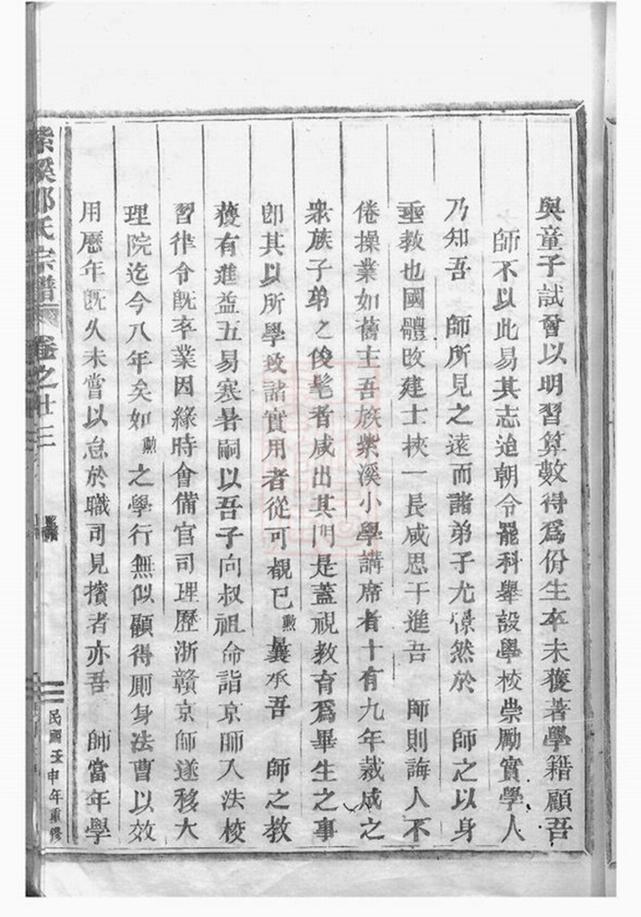 與童子試曾以明習算數得爲佾生卒未獲著學籍顧吾
師不以此易其志迨朝令罷科舉設學校崇勵實學人
乃知吾　師所見之遠而諸弟子尤憬然於　師之以身
垂教也國體改建士挾一長咸思干進吾　師則誨人不
倦操業如舊主吾族紫溪小學講席者十有九年裁成之
衆族子弟之俊髦者咸出其門是蓋視教育爲畢生之事
卽其以所學攷諸實用者從可覩已勲曩承吾　師之教
獲有進益五易寒暑嗣以吾子向叔祖命詣京師入法校
習律令旣卒業因緣時會備官司理歷浙贛京師遂移大
理院迄今八年矣如勲之學行無似顧得厠身法曹以效
用歷年旣久未嘗以怠於職司見擯者亦吾　師當年學
紫溪邵氏宗譜　卷之廿三
民國壬申年重修